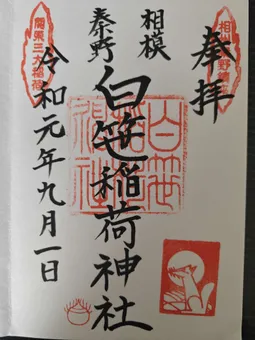 奉拝
相模
秦野
白笹稲荷神社
令和元年九月一日
関東三大稲荷
白笹
稲荷
神社